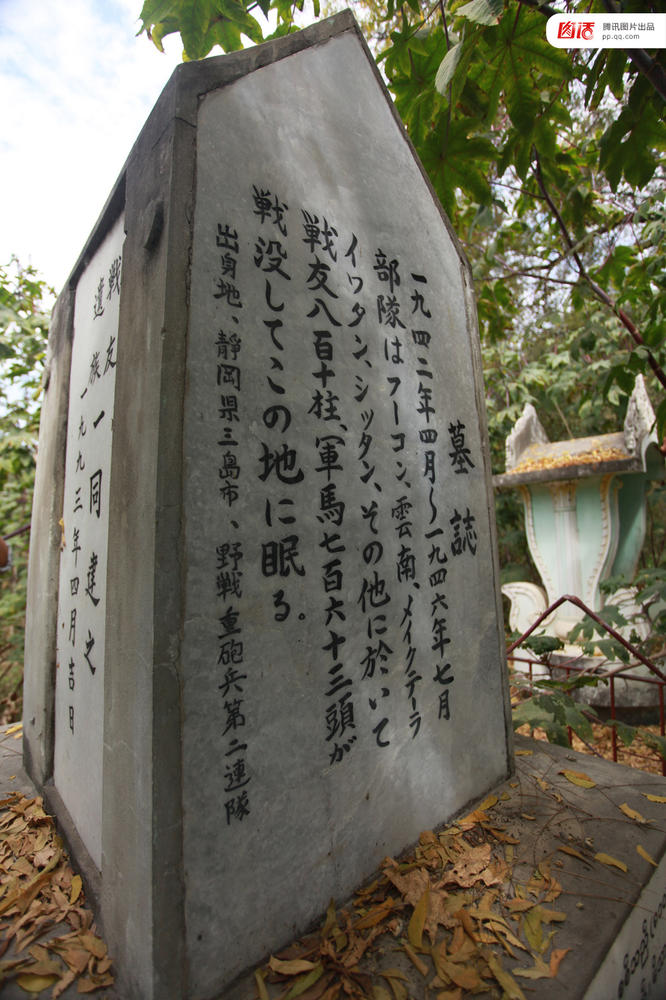 图话
腾讯图片出品
pp.qq.com
墓誌
一九四二年四月〜一九四六年七月
部隊はフーコン、雲南、メイクテーラ
イワタン、シッタン、その他に於いて
戦友八百十柱、軍馬七百六十三頭が
戦没してこの地に眠る。
出身地、静岡県三島市、野戦重砲兵第二連隊
戦友
遺族一同建之
一九九三年四月吉日